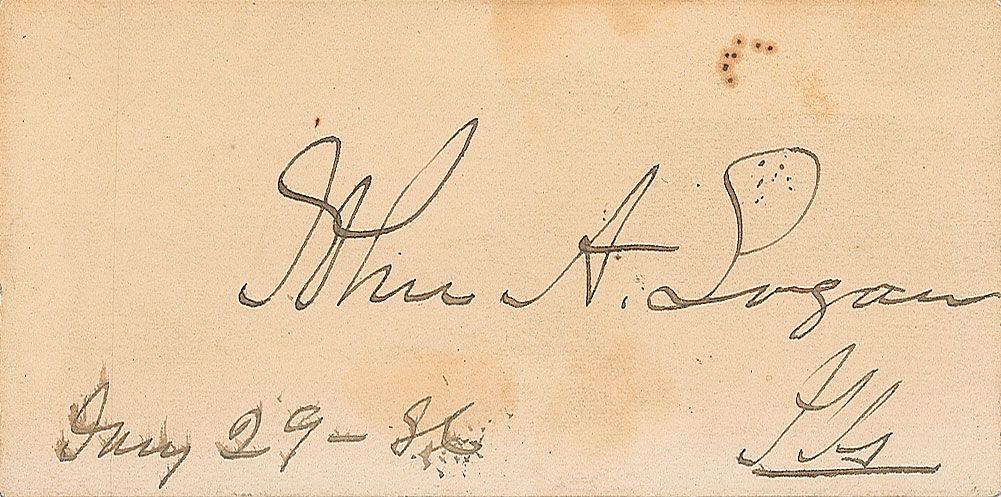 John A. Logan
Ills
Jany 29 - 86